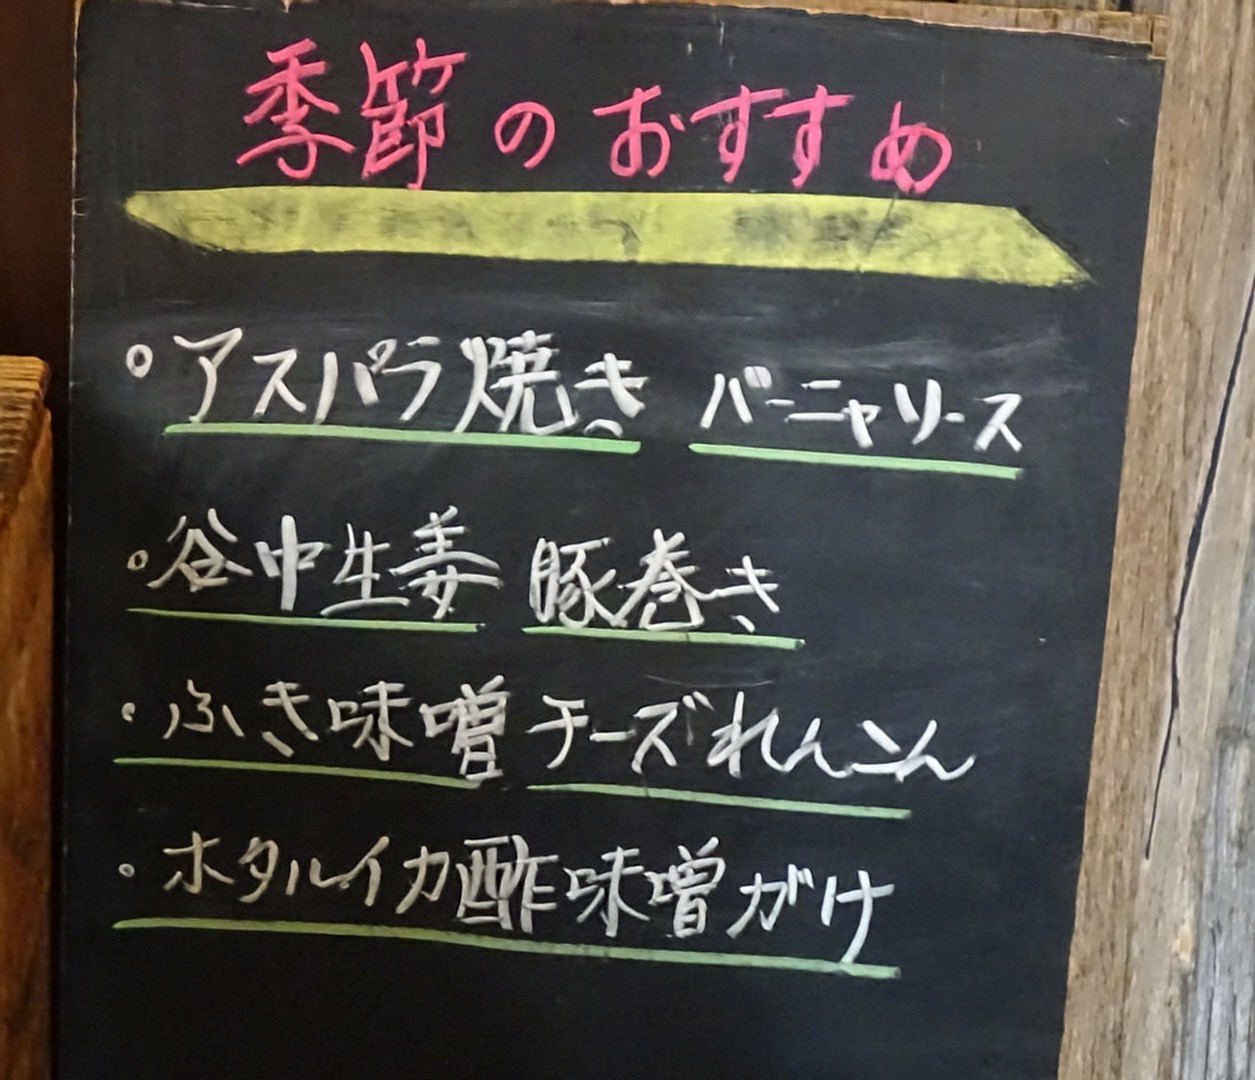 季節のおすすめ
。アスパラ焼き バーニャソース
。谷中生姜 豚巻き
。ふき味噌 チーズれんこん
。ホタルイカ酢味噌がけ